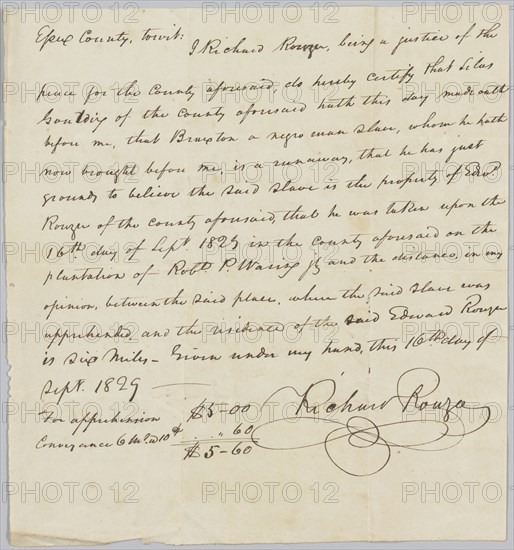 Essex County, towit:
I Richard Rouzee, being a justice of the
peace for the County aforesaid, do hereby certify that Silas
Gaulding of the County aforesaid hath this day made oath
before me, that Braxton a negro man slave, whom he hath
now brought before me, is a runaway, that he has just
grounds to believe the said slave is the property of Edwd.
Rouzee of the county aforesaid, that he was taken upon the
16th. day of Sept. 1829 in the county aforesaid on the
plantation of Robt. P. Waring jr and the distance, in my
opinion, between the said place, where the said slave was
apprehended, and the residence of the said Edward Rouzee
is six miles - Given under my hand, this 16th day of
Sept. 1829
Richard Rouzee
For apprehension $5-00
Conveyance 6 Ms. @ 10 ₵ .. " 60
$5-60
PHOTO 12